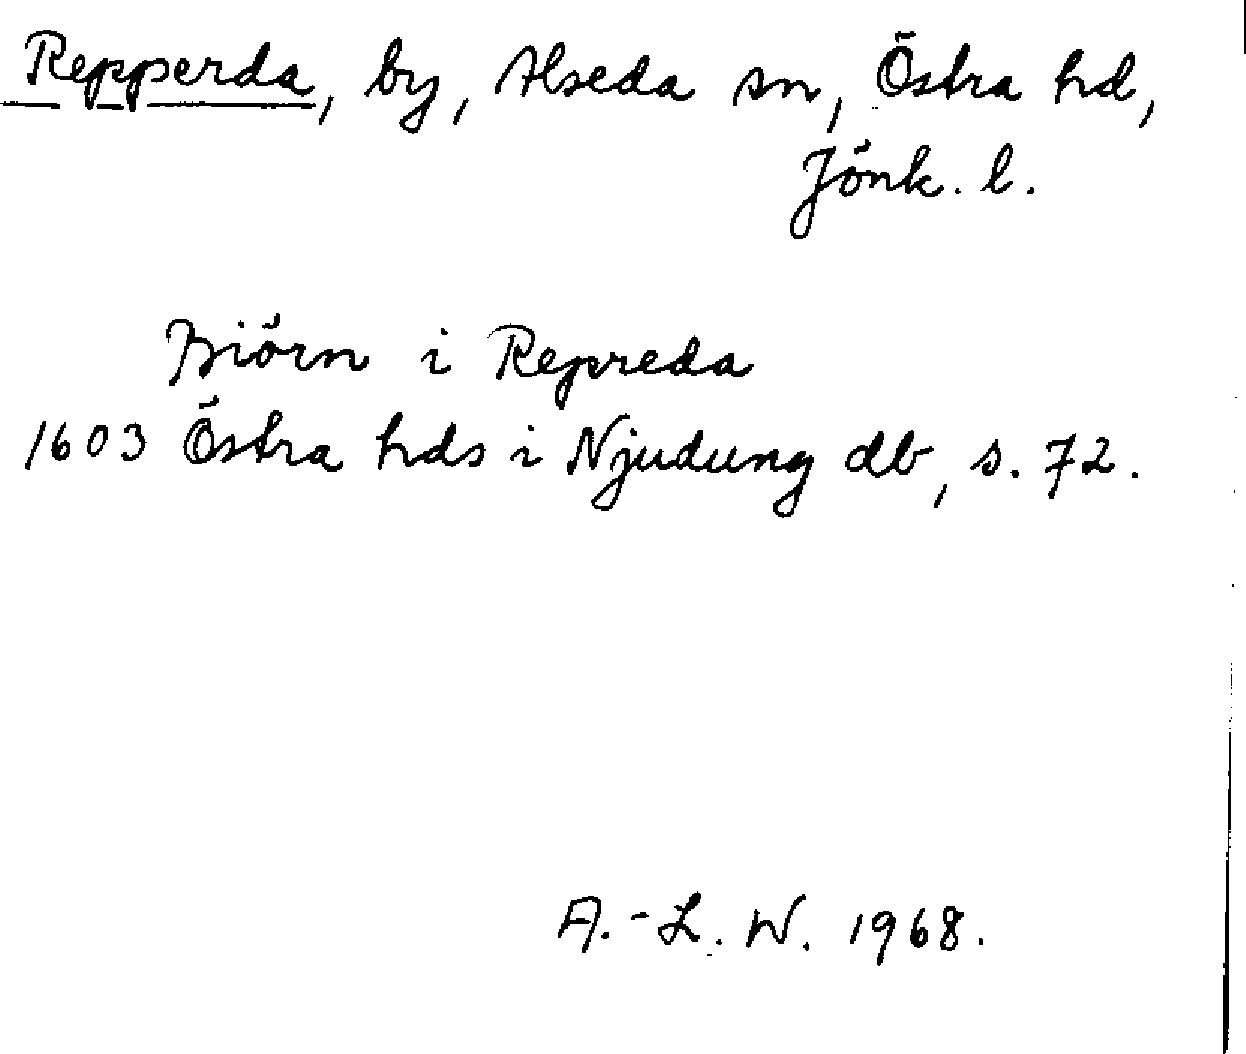 Repperda, by, Alseda sn, Östra hd,
Jönk. l.
Biörn i Repreda
1603 Östra hds i Njudung db, s. 72.
A.-L. W. 1968.